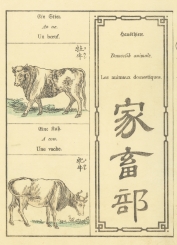 Ein Stier.
An ox.
Un bœuf.
Eine Kuh.
A cow.
Une vache.
Hausthiere.
Domestic animals.
Les animaux domestiques.
家畜部